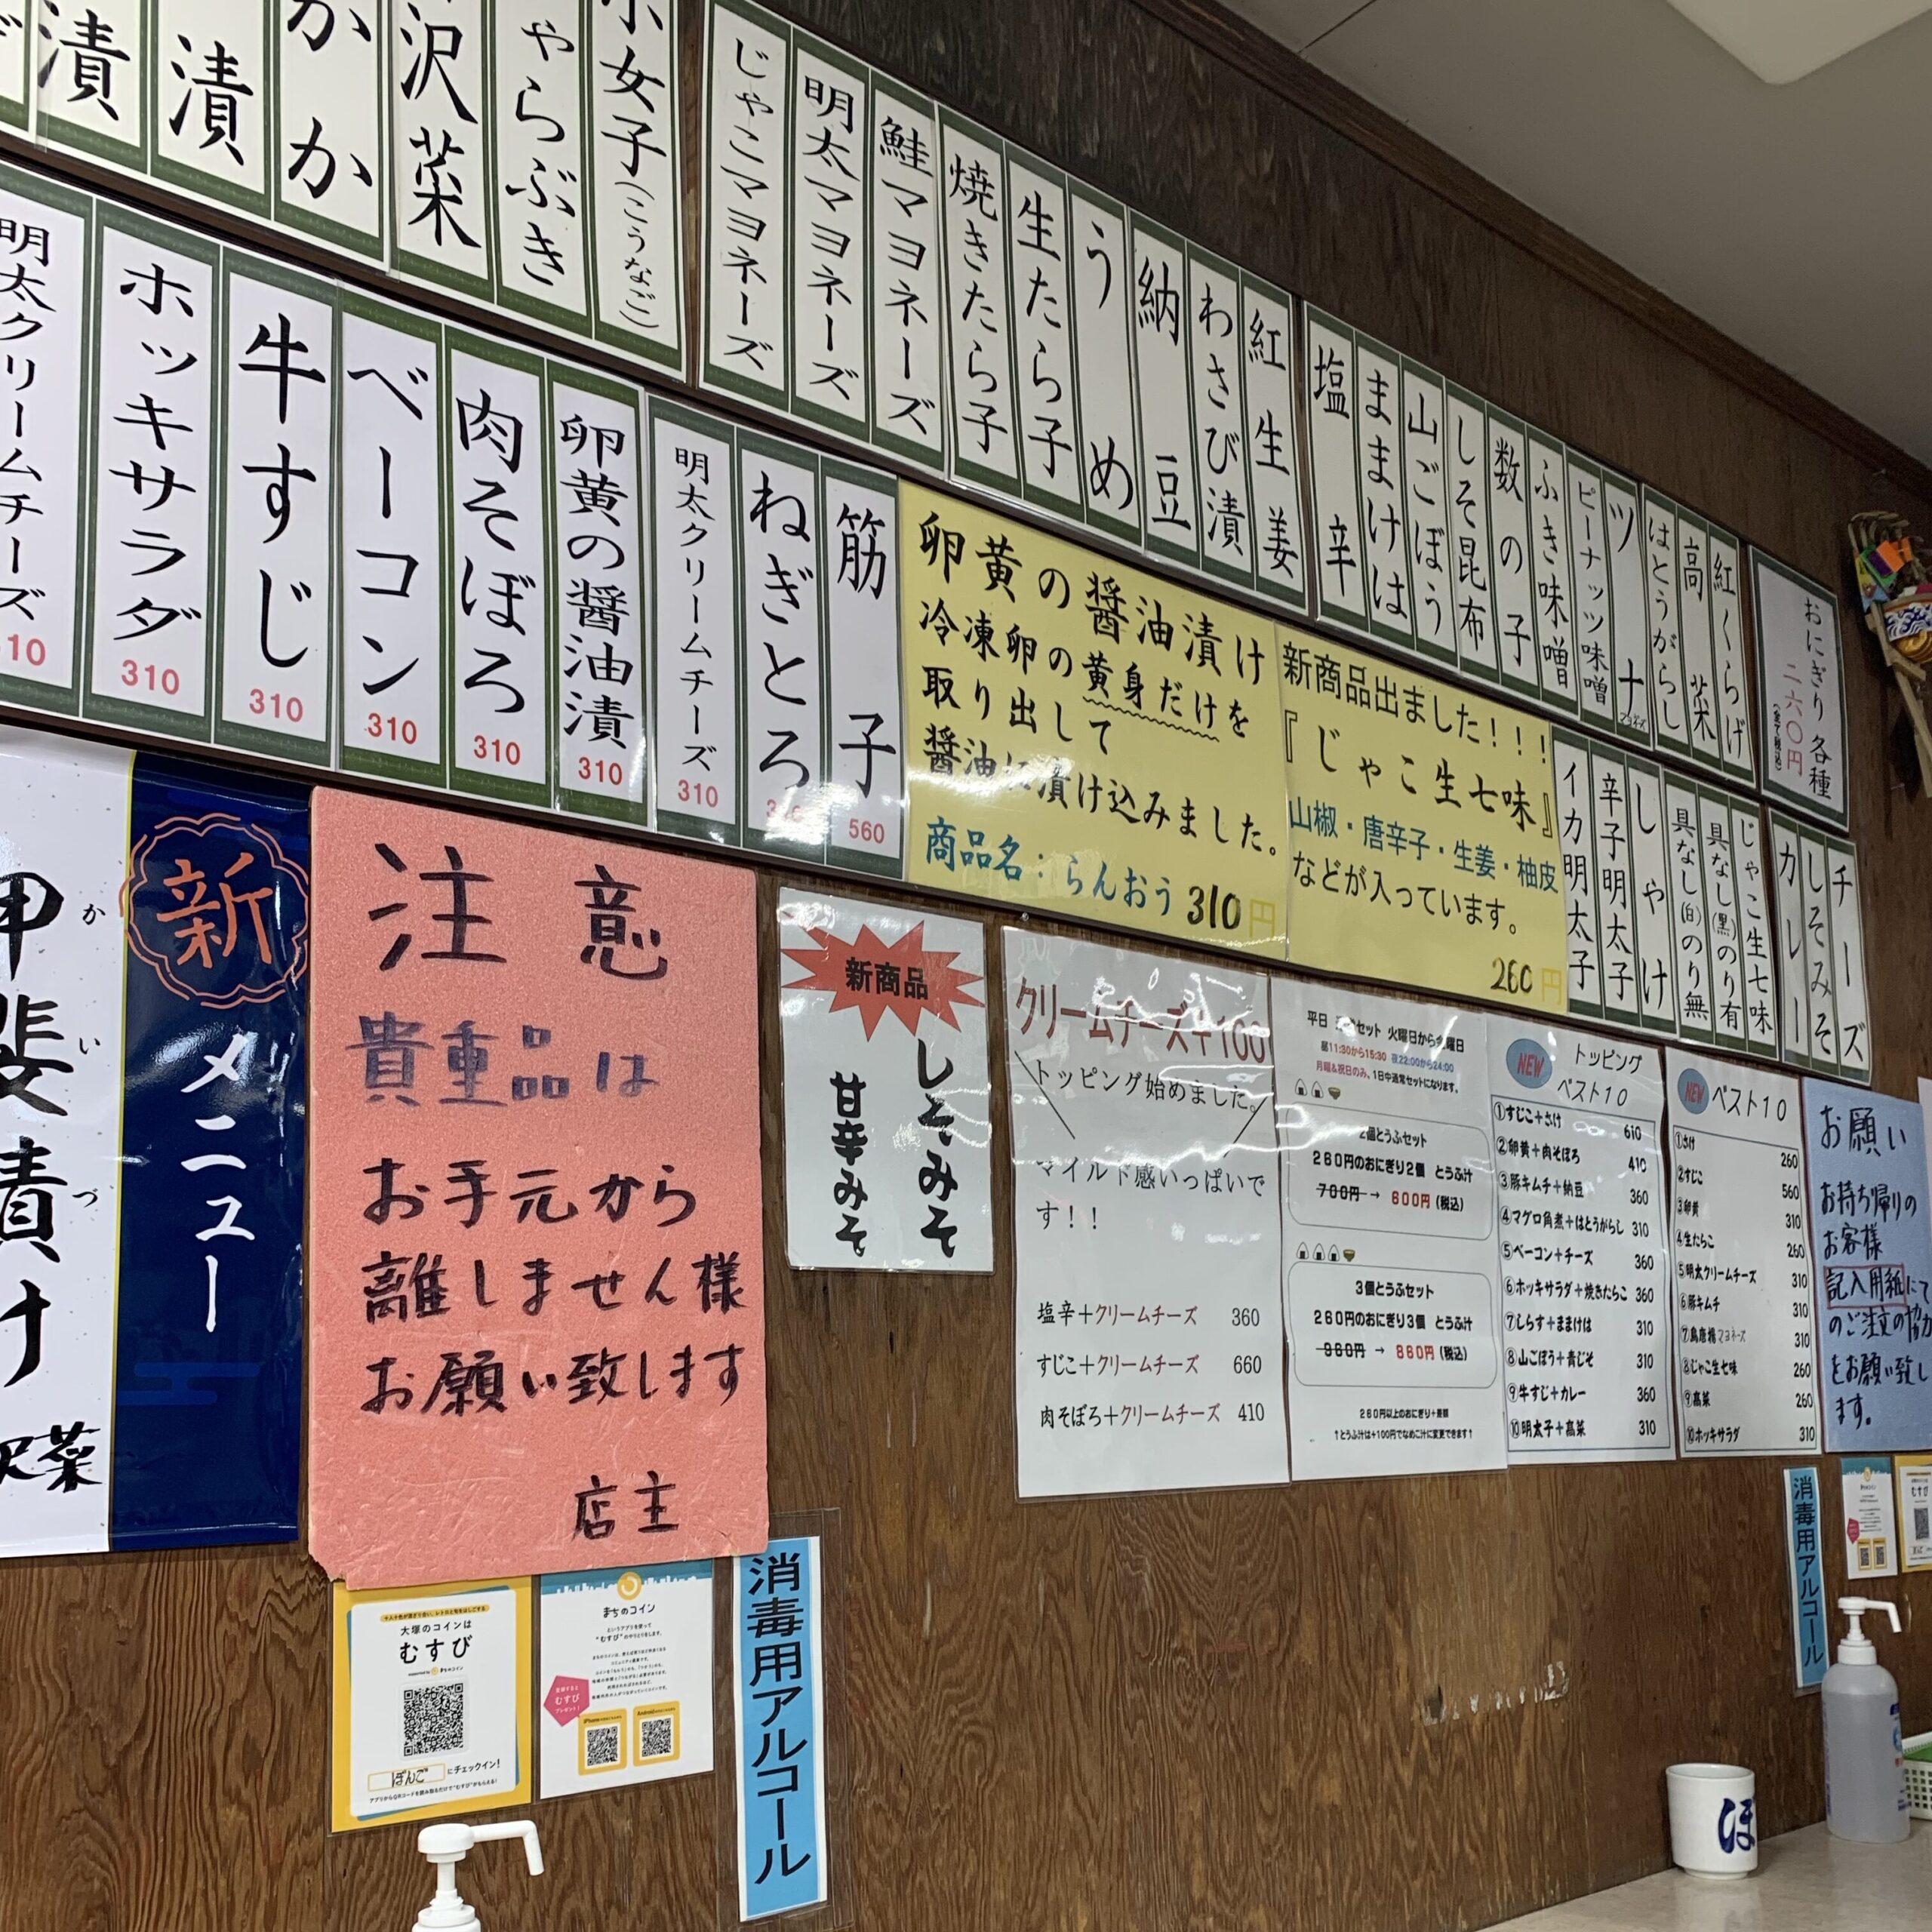 漬
漬
かか
沢菜
ゃらぶき
小女子(こうなご)
じゃこマヨネーズ
明太マヨネーズ
鮭マヨネーズ
焼きたら子
生たら子
うめ
納豆
わさび漬
紅生姜
塩辛
ままけは
山ごぼう
しそ昆布
数の子
ふき味噌
ピーナッツ味噌
ツナ
はとうがらし
高菜
紅くらげ
おにぎり各種
二六〇円
明太クリームチーズ
10
ホッキサラダ
310
牛すじ
310
ベーコン
310
肉そぼろ
310
卵黄の醤油漬
310
明太クリームチーズ
310
ねぎとろ
筋子
560
卵黄の醤油漬け
冷凍卵の黄身だけを
取り出して
醤油に漬け込みました。
商品名：らんおう 310円
新商品出ました！！！
『じゃこ生七味』
山椒・唐辛子・生姜・柚皮
などが入っています。
260円
イカ明太子
辛子明太子
しゃけ
具なし(白)のり無
具なし(黒)のり有
じゃこ生七味
カレー
しそみそ
チーズ
甲斐漬け
かいづ
沢菜
新
メニュー
注意
貴重品は
お手元から
離しません様
お願い致します
店主
新商品
しそみそ
甘辛みそ
クリームチーズ+100
トッピング始めました。
マイルド感いっぱいで
す！！
塩辛＋クリームチーズ 360
すじこ＋クリームチーズ 660
肉そぼろ＋クリームチーズ 410
昼11:30から15:30 夜22:00から24:00
月曜&祝日のみ、1日中通常セットになります。
2個とうふセット
260円のおにぎり2個 とうふ汁
700円 → 600円 (税込)
3個とうふセット
260円のおにぎり3個 とうふ汁
960円 → 860円 (税込)
260円以上のおにぎり+差額
↑とうふ汁は+100円でなめこ汁に変更できます↑
NEW
トッピング
ベスト10
①すじこ+さけ 610
②卵黄+肉そぼろ 410
③豚キムチ+納豆 360
④マグロ角煮+はとうがらし 310
⑤ベーコン+チーズ 360
⑥ホッキサラダ+焼きたらこ 360
⑦しらす+ままけは 310
⑧山ごぼう+青じそ 310
⑨牛すじ+カレー 360
⑩明太子+高菜 310
NEW
ベスト10
①さけ 260
②すじこ 560
③卵黄 310
④生たらこ 260
⑤明太クリームチーズ 310
⑥豚キムチ 310
⑦鳥唐揚マヨネーズ 310
⑧じゃこ生七味 260
⑨高菜 260
⑩ホッキサラダ 310
お願い
お持ち帰りの
お客様
記入用紙にて
のご注文の協力
をお願い致し
ます。
大塚のコインは
むすび
ぽんご にチェックイン！
まちのコイン
というアプリを使って
"むすび"のやりとりをします。
消毒用アルコール
消毒用アルコール
むすび
ほ